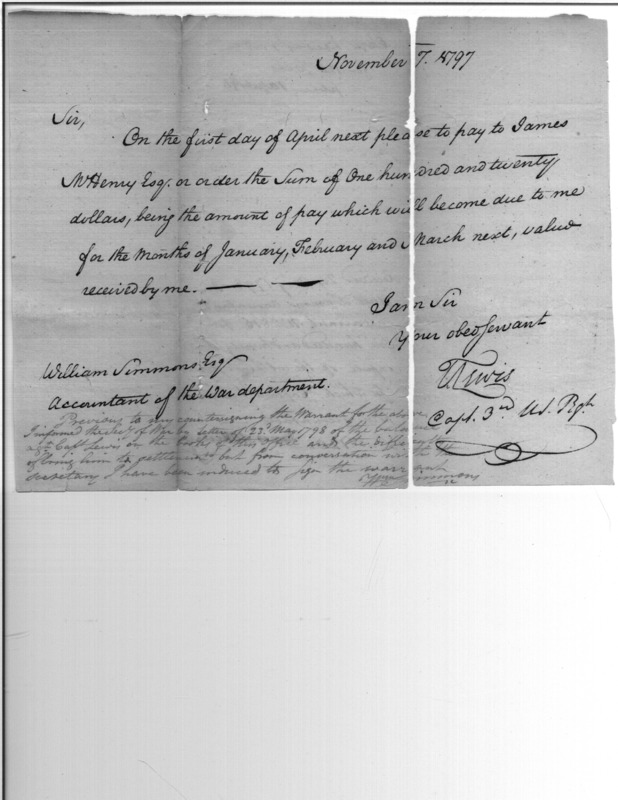 November 7. 1797
Sir,
On the first day of April next please to pay to James
McHenry Esq. or order the Sum of One hundred and twenty
dollars, being the amount of pay which will become due to me
for the Months of January, February and March next, value
received by me.
I am Sir
Your obed Servant
Lewis
Capt. 3rd US. Regt
William Simmons Esq
Accountant of the War department.
Previous to my countersigning the Warrant for the above
I informed the Secy of War by letter of 23d May 1798 of the balance
agt Capt Lewis on the books of this Office and the difficulty
of bring him to settlement but from conversation with the
Secretary I have been induced to sign the warrant
Simmons